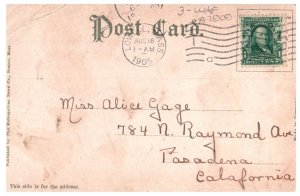 Post Card.
AUG 16
1-AM
1905
C
Miss Alice Gage
784 N. Raymond Ave
Pasadena
Calafornia
This side is for the address.
Published by The Metropolitan News Co., Boston, Mass.